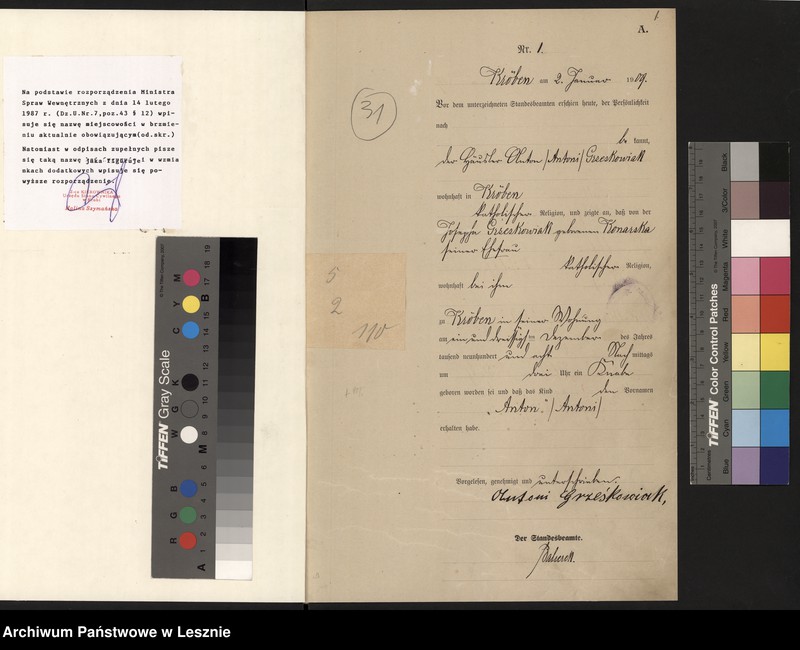 Na podstawie rozporządzenia Ministra
Spraw Wewnętrznych z dnia 14 lutego
1987 r. (Dz.U.Nr.7,poz.43 § 12) wpi-
suje się nazwę miejscowości w brzmie-
niu aktualnie obowiązującym(od.skr.)
Natomiast w odpisach zupełnych pisze
się taką nazwę i w wzmia
nkach dodatkowych wpisuje się po-
wyższe rozporządzenie.
Halina Szymańska
TIFFEN Gray Scale
© The Tiffen Company, 2007
R G B W G K C Y M
A 1 2 3 4 5 6 M 8 9 10 11 12 13 14 15 B 17 18 19
1
A.
Nr. 1.
31
Kröben am 2. Januar 1909.
Vor dem unterzeichneten Standesbeamten erschien heute, der Persönlichkeit
nach
be kannt,
der Häusler Anton /Antoni/ Grzeskowiak
wohnhaft in Kröben
katholischer Religion, und zeigte an, daß von der
Josepha Grzeskowiak geborenen Konarska
seiner Ehefrau
katholischer Religion,
wohnhaft bei ihm
5
2
110
zu Kröben in seiner Wohnung
am ein und dreißigsten Dezember des Jahres
tausend neunhundert und acht Nachmittags
um drei Uhr ein Knabe
geboren worden sei und daß das Kind den Vornamen
„Anton" /Antoni/
erhalten habe.
Vorgelesen, genehmigt und unterschrieben.
Antoni Grześkowiak,
Der Standesbeamte.
TIFFEN Color Control Patches
© The Tiffen Company, 2007
Blue Cyan Green Yellow Red Magenta White 3/Color Black
Centimetres
Archiwum Państwowe w Lesznie